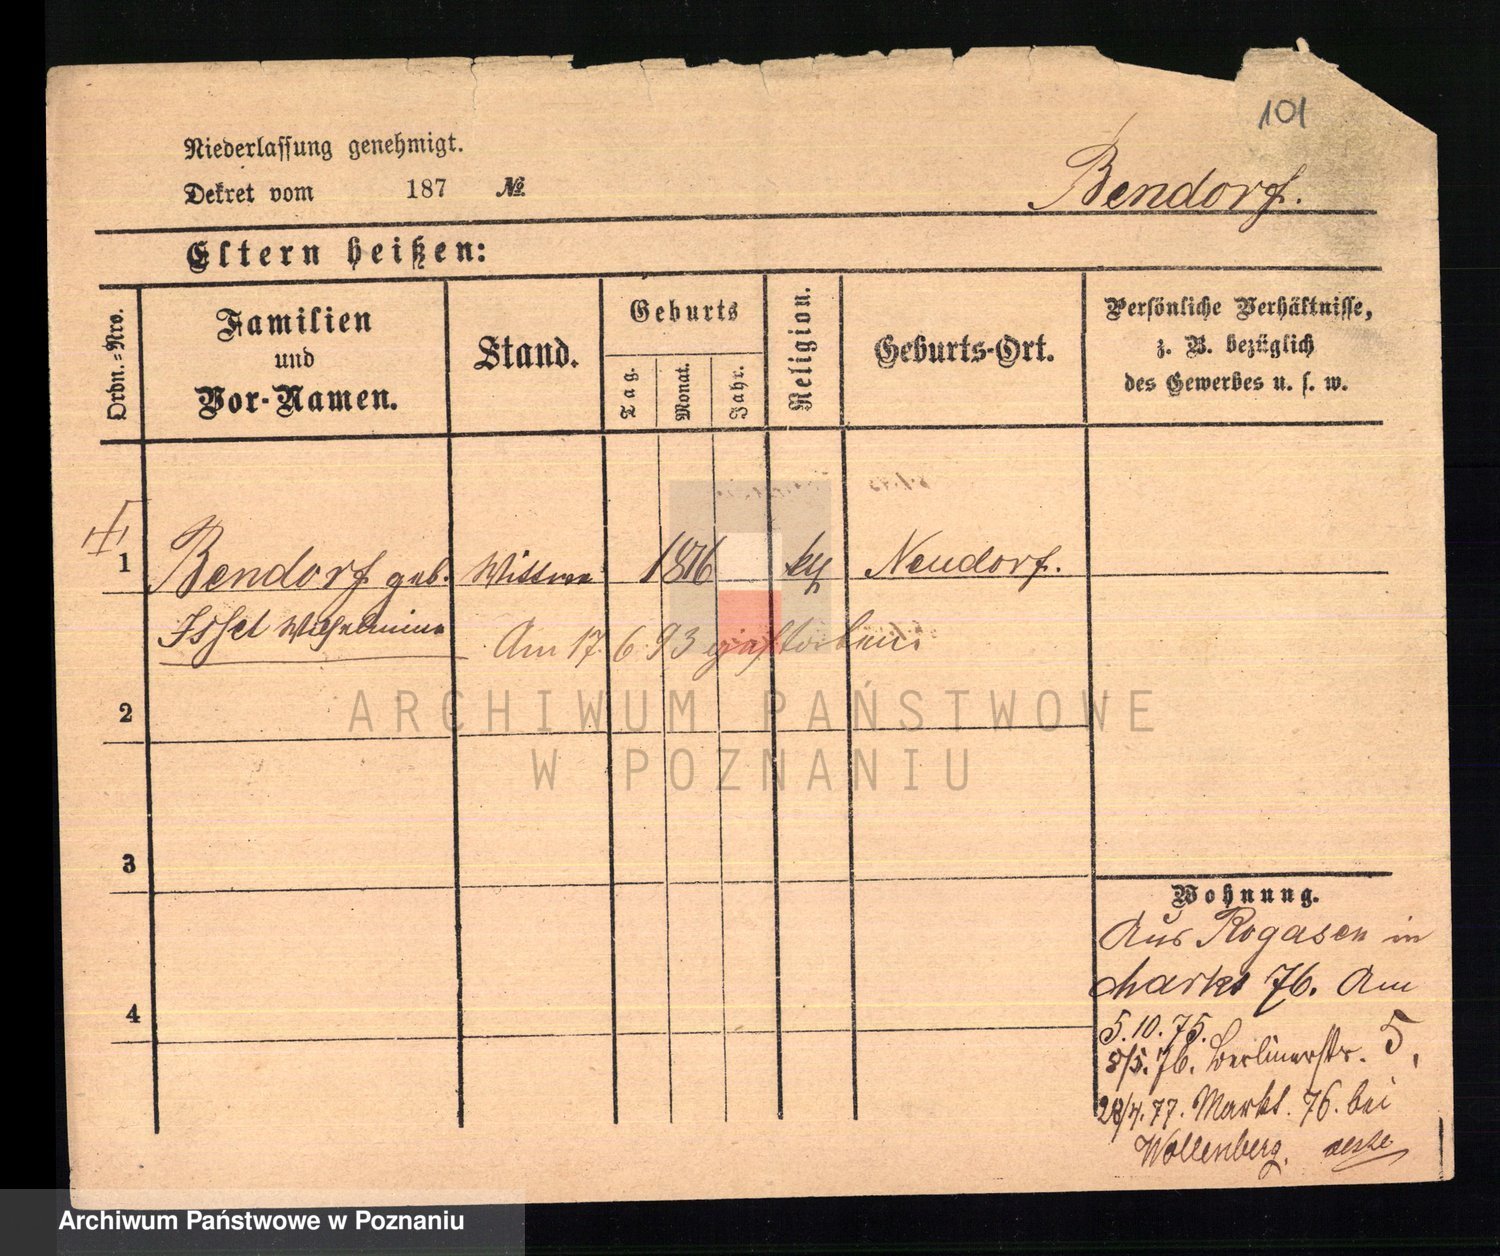 101
Niederlassung genehmigt.
Dekret vom 187 №
Bendorf.
Eltern heißen:
Ordn.-Nro.
Familien
und
Vor-Namen.
Stand.
Geburts
Tag.
Monat.
Jahr.
Religion.
Geburts-Ort.
Persönliche Verhältnisse,
z. B. bezüglich
des Gewerbes u. s. w.
1
Bendorf geb. Wittwe Neudorf.
Wilhelmine
Am 17. 6. 93 gestorben.
2
3
4
Wohnung.
Aus Rogasen in
Markt 76. Am
5.10.75.
8/5. 76. Berlinerstr. 5,
28/4. 77. Markt. 76. bei
Wollenberg.
ARCHIWUM PAŃSTWOWE
W POZNANIU
Archiwum Państwowe w Poznaniu